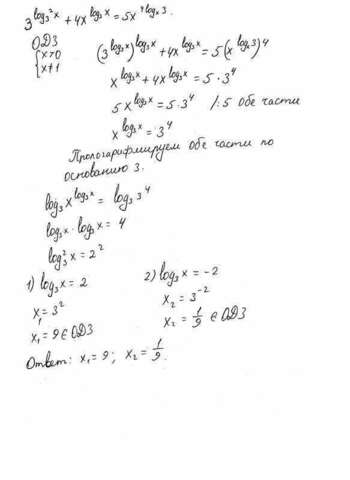 3^{log₃²x} + 4x^{log₃x} = 5x^{4log_x 3}.
ОДЗ
{ x>0
x≠1
(3^{log₃x})^{log₃x} + 4x^{log₃x} = 5(x^{log_x 3})^4
x^{log₃x} + 4x^{log₃x} = 5·3^4
5x^{log₃x} = 5·3^4 /:5 обе части
x^{log₃x} = 3^4
Прологарифмируем обе части по
основанию 3.
log₃x^{log₃x} = log₃3^4
log₃x·log₃x = 4
log₃²x = 2²
1) log₃x = 2
x₁ = 3²
x₁ = 9 ∈ ОДЗ
2) log₃x = -2
x₂ = 3^{-2}
x₂ = 1/9 ∈ ОДЗ
Ответ: x₁ = 9; x₂ = 1/9.